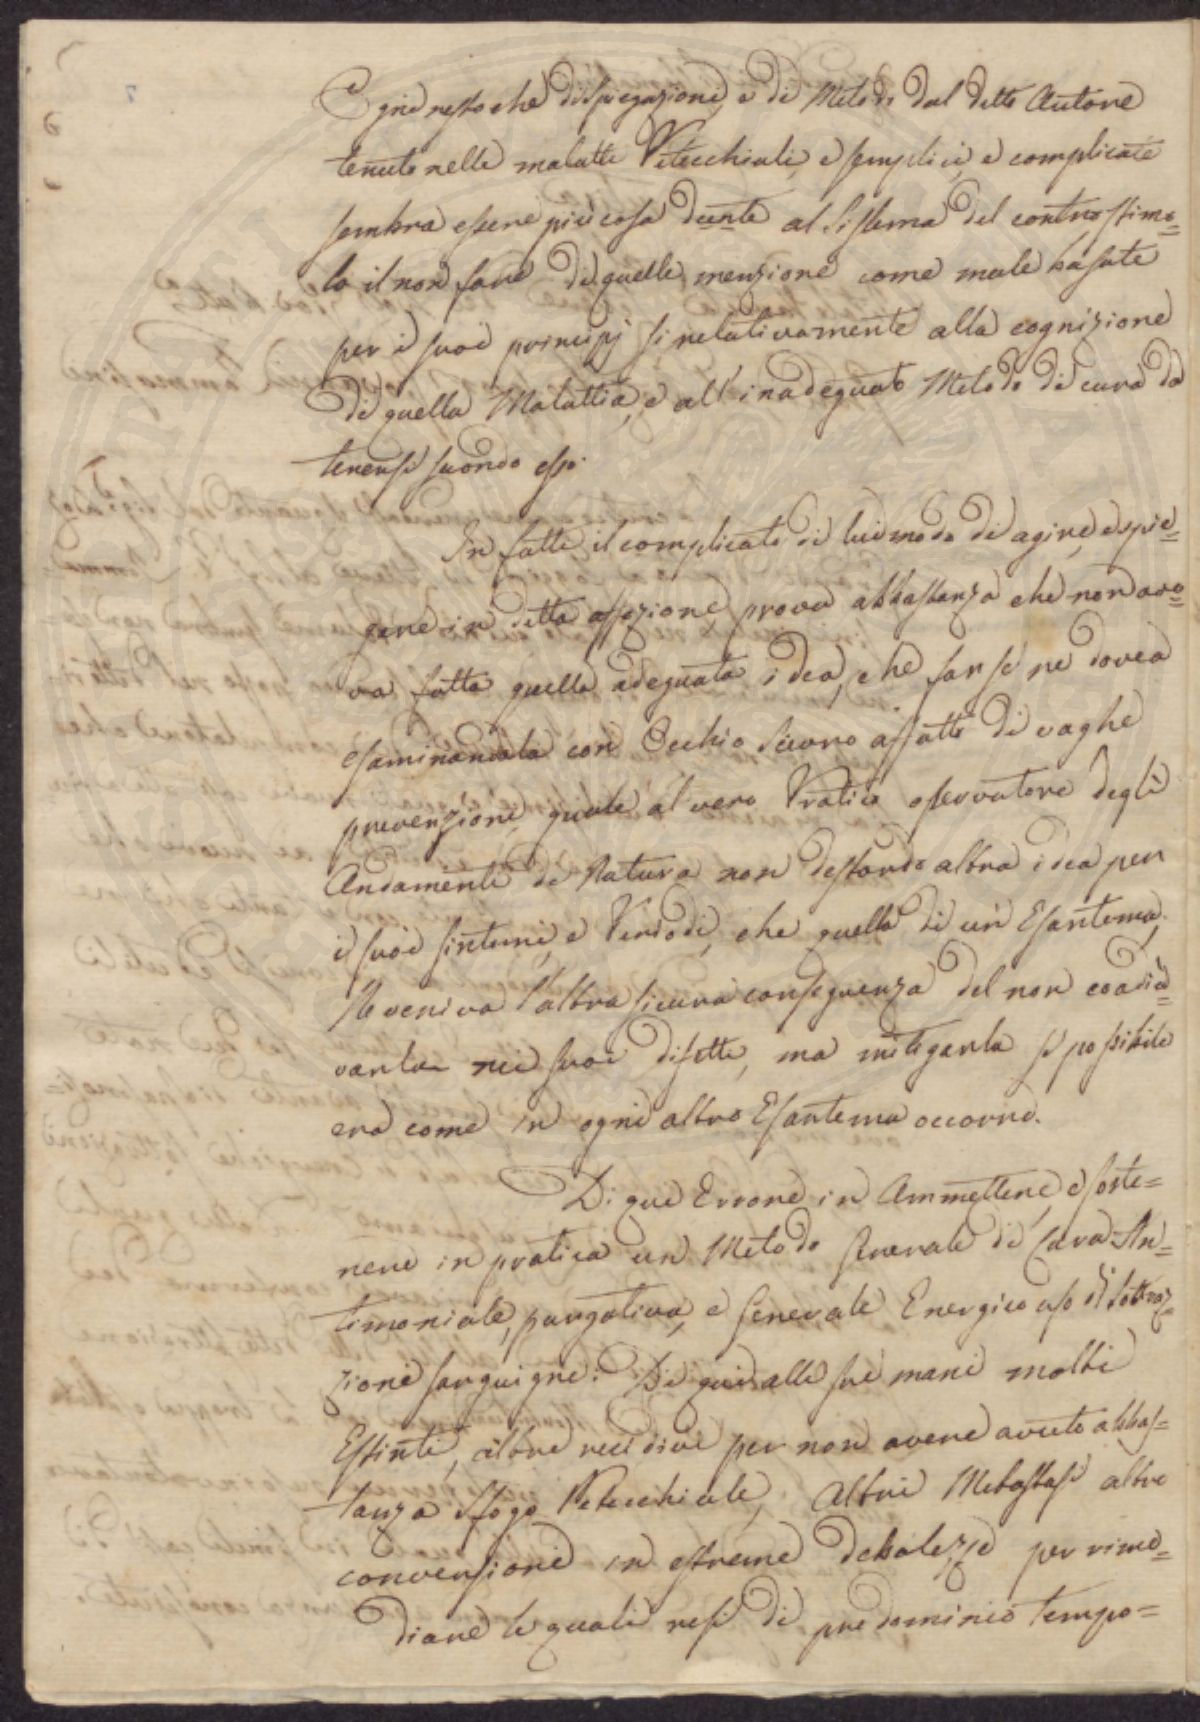 Ogni restoche di spiegazione, e di Metodo dal detto Autore
tenuto nelle malatti Petecchiali, e semplici, e complicate
sembra essere più cosa decente al Sistema del controstimo=
lo il non fare di quelle menzione come male basate
per i suoi principj si relativamente alla cognizione
di quella Malattia, e all' inadeguato Metodo di cura da
tenersi secondo essi.
In fatti il complicato di lui modo di agire, e spie=
gare in detta affezione, prova abbastanza che non ave=
va fatta quella adeguata idea, che farse ne dovea
esaminandola con Occhio sicuro affatto di vaghe
prevenzioni, quale al vero Pratico osservatore degli
Andamenti di Natura non destando altra idea per
i suoi sintomi, e Periodi, che quella di un' Esantema,
Ne veniva l'altra sicura conseguenza del non coadiu=
varla nei suoi difetti, ma mitigarla se possibile
era come in ogni altro Esantema occorre.
Di qui Errore in Ammettere, e soste=
nere in pratica un Metodo Generale di Cura An=
timoniale, purgativa, e Generale Energico uso di sottraz=
zioni sanguigne: Di qui alle sue mani molti
Estinti, altri recidivi per non avere avuto abbas=
tanza sfogo Petecchiale, Altri Metastasi altre
conversioni in estreme debolezze per rime=
diare le quali resi di predominio tempo=